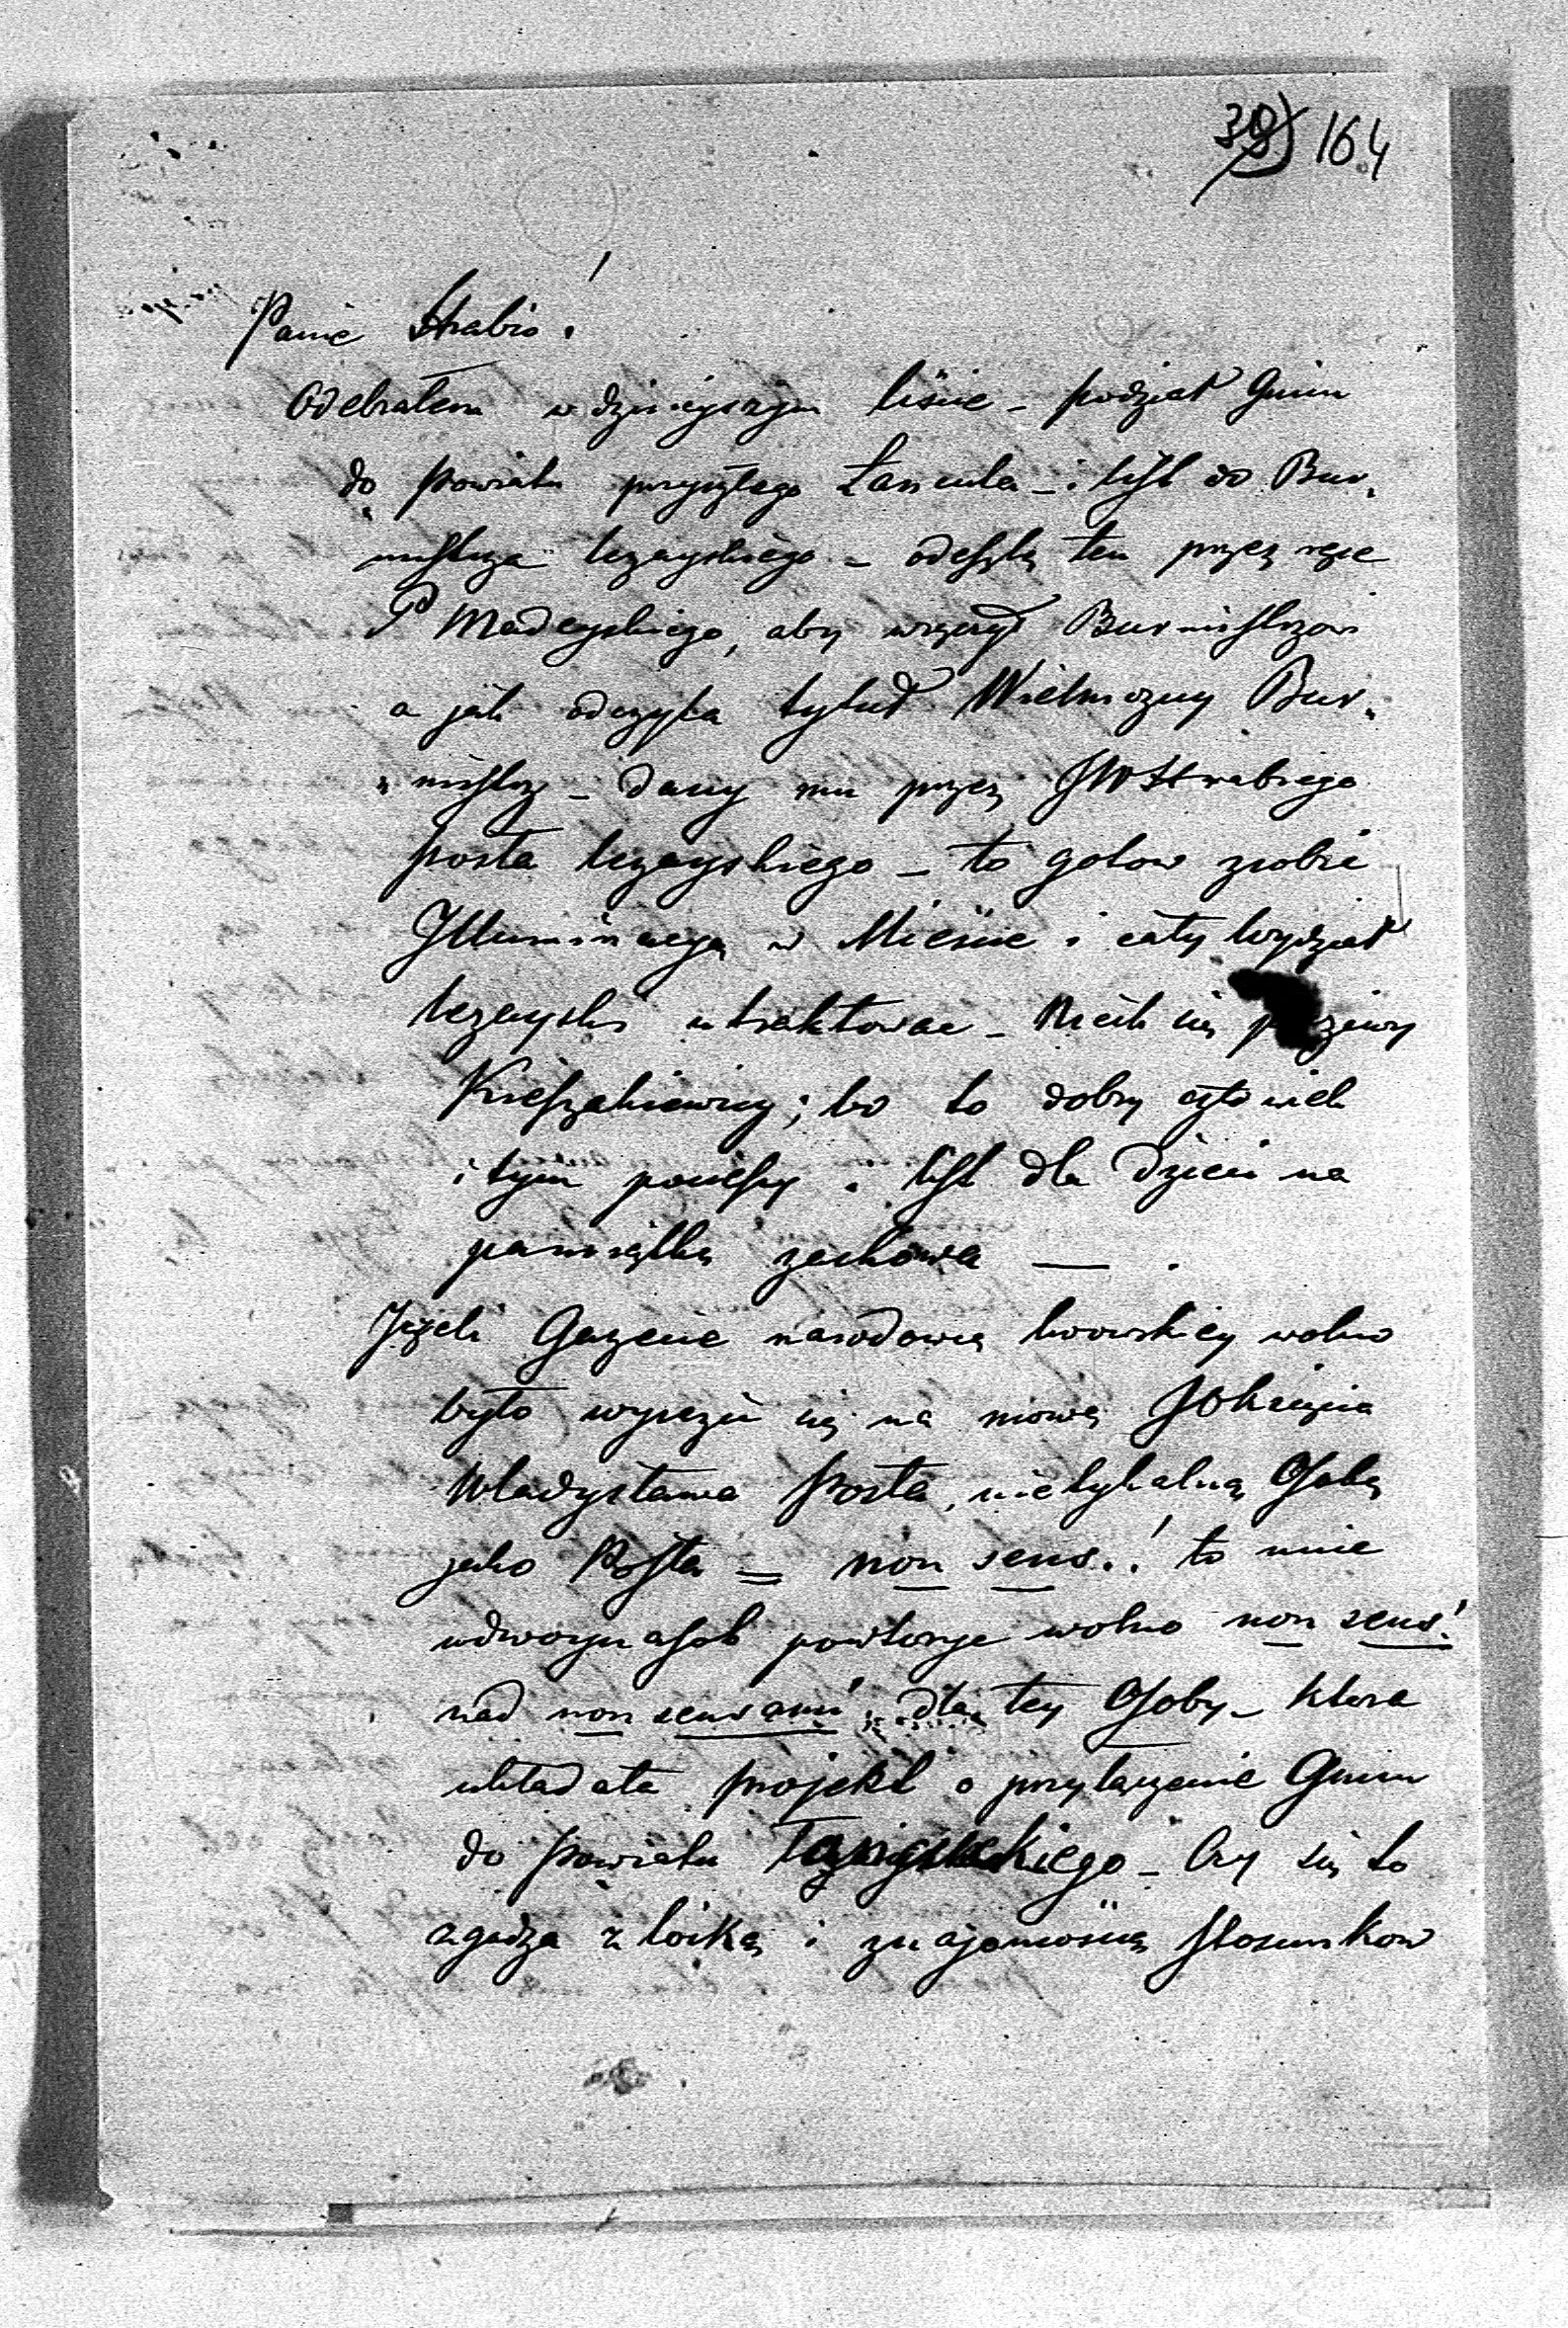 39) 164
Panie Hrabio!
Odebrałem w dzisieyszym liście – podział Gmin
do powiatu przyszłego Łancuta – i list do Bur„
mistrza leżayskiego – odeszlę ten przez ręce
P Madeyskiego, aby wręczył Burmistrzowi
a jak odczyta tytuł Wielmożny Bur„
„mistrz – dany mu przez JWHrabiego
posła leżayskiego – to gotow zrobić
Illuminacyą w Mieście i cały Wydział
leżayski utraktować – Niech się
Krieszakiewicz; bo to dobry człowiek
i tym pocieszy. list dla dzieci na
pamiątkę zachowa — .
Jeżeli Gazecie narodowej lwowskiey wolno
było wyrazić się na mowę JOksięcia
Władysława Posła, nietykalną Osobą
jako Posła = non sens.! to mnie
wdwoynasob powtorzyć wolno non sens!
nad non sensami, dla tey Osoby – ktora
układała projekt o przyłączenie Gmin
do powiatu – Czy się to
zgadza z loiką i znajomością stosunkow